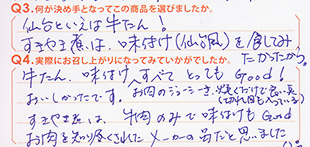 Q3.何が決め手となってこの商品を選びましたか。
仙台といえば牛たん!
すきやき煮は、味付け(仙台風)を食してみ
たかったから。
Q4.実際にお召し上がりになってみていかがでしたか。
牛たん、味付けすべてとってもGood!
おいしかったです。お肉のジューシーさ、焼くだけで良い長
(切れ目も入っている)
すきやき煮は、牛肉のみで味付けもGood
お肉を知り尽くされたメーカーの品だと思いました